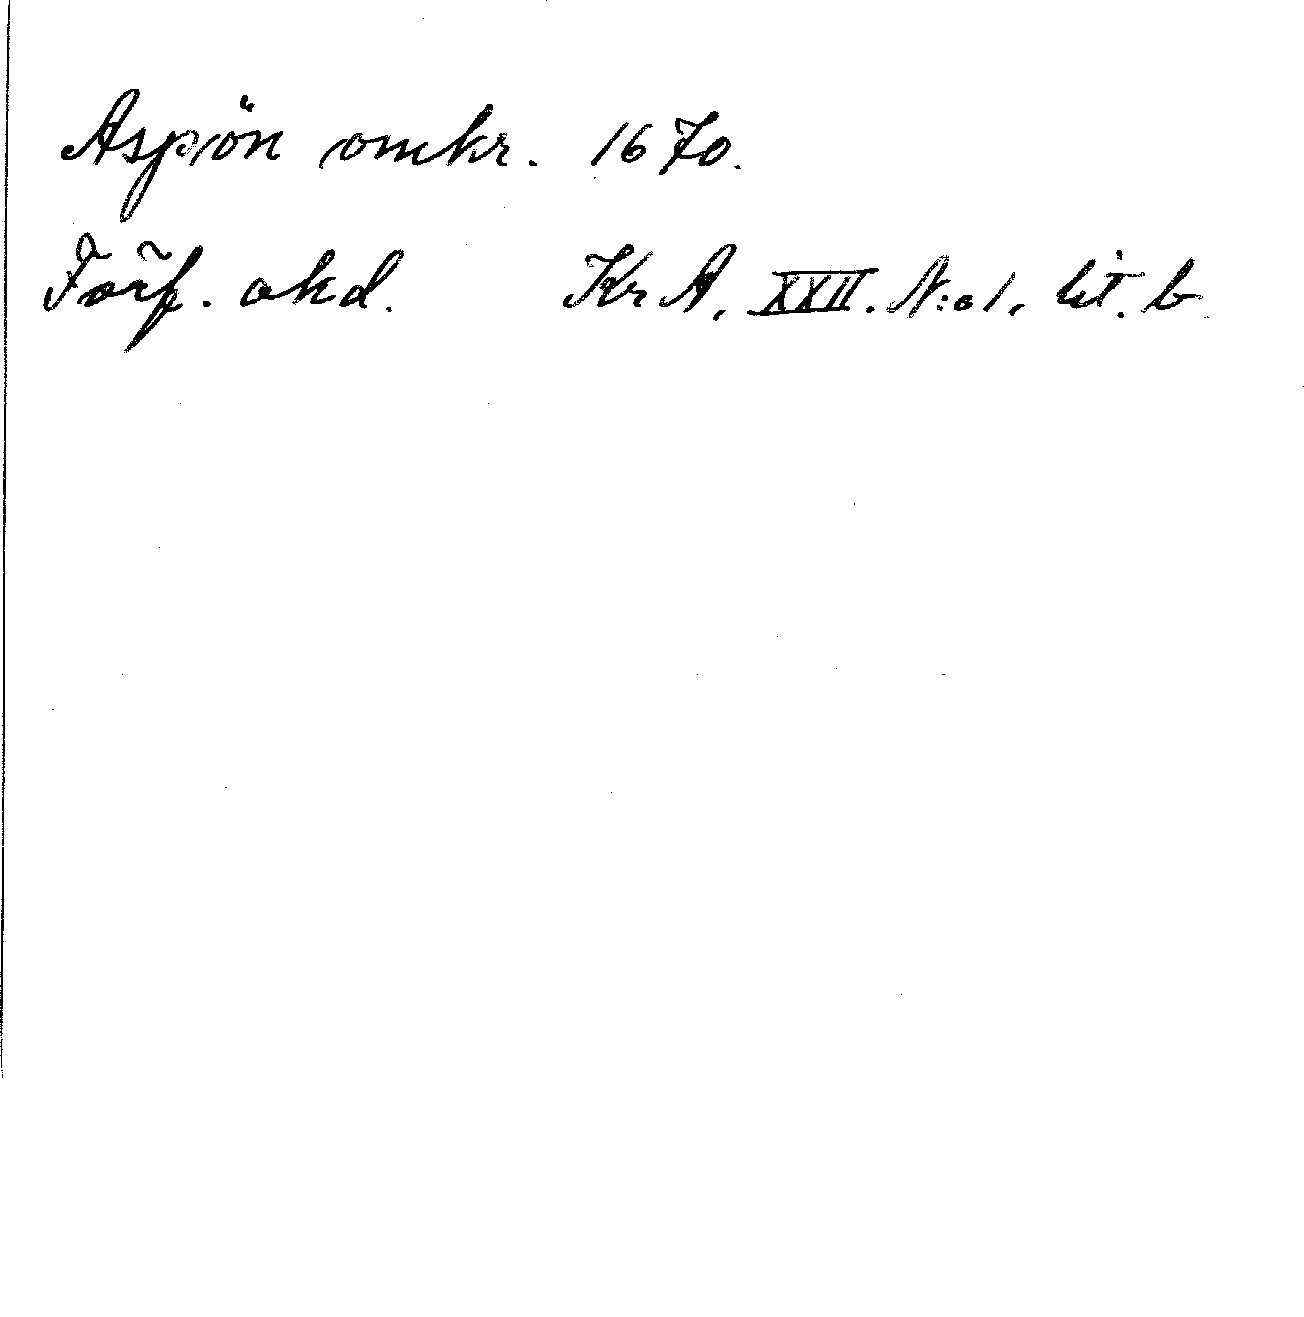 Aspön omkr. 1670.
Förf. okd. Kr A. XXII. N:o 1. lit. b